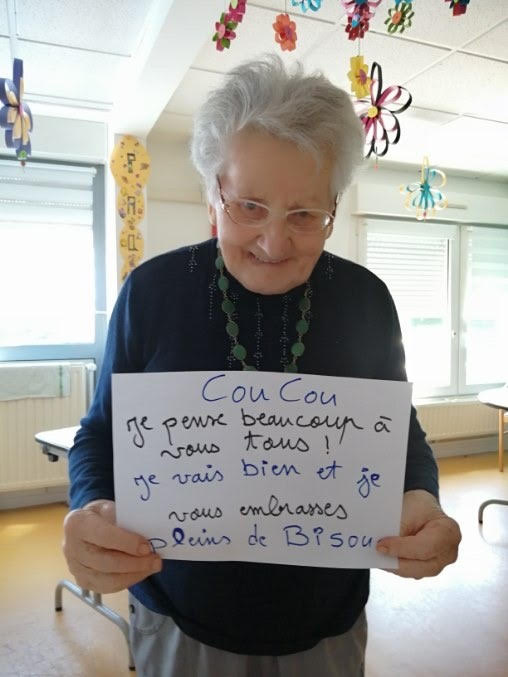 Cou Cou
je pense beaucoup à
vous tous !
je vais bien et je
vous embrasses
pleins de Bisou
P
A
Q